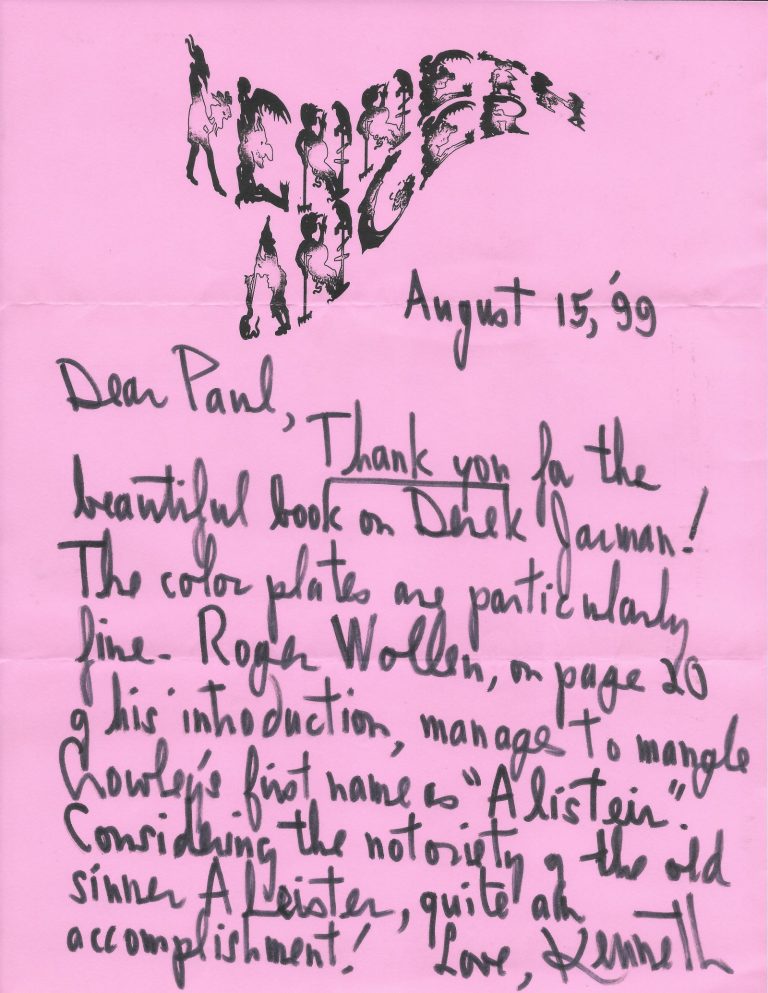 KENNETH
ANGER
August 15, '99
Dear Paul,
Thank you for the
beautiful book on Derek Jarman!
The color plates are particularly
fine. Roger Wollen, on page 20
of his introduction, manages to mangle
Crowley's first name as "Alisteir".
Considering the notoriety of the old
sinner Aleister, quite an
accomplishment! Love, Kenneth